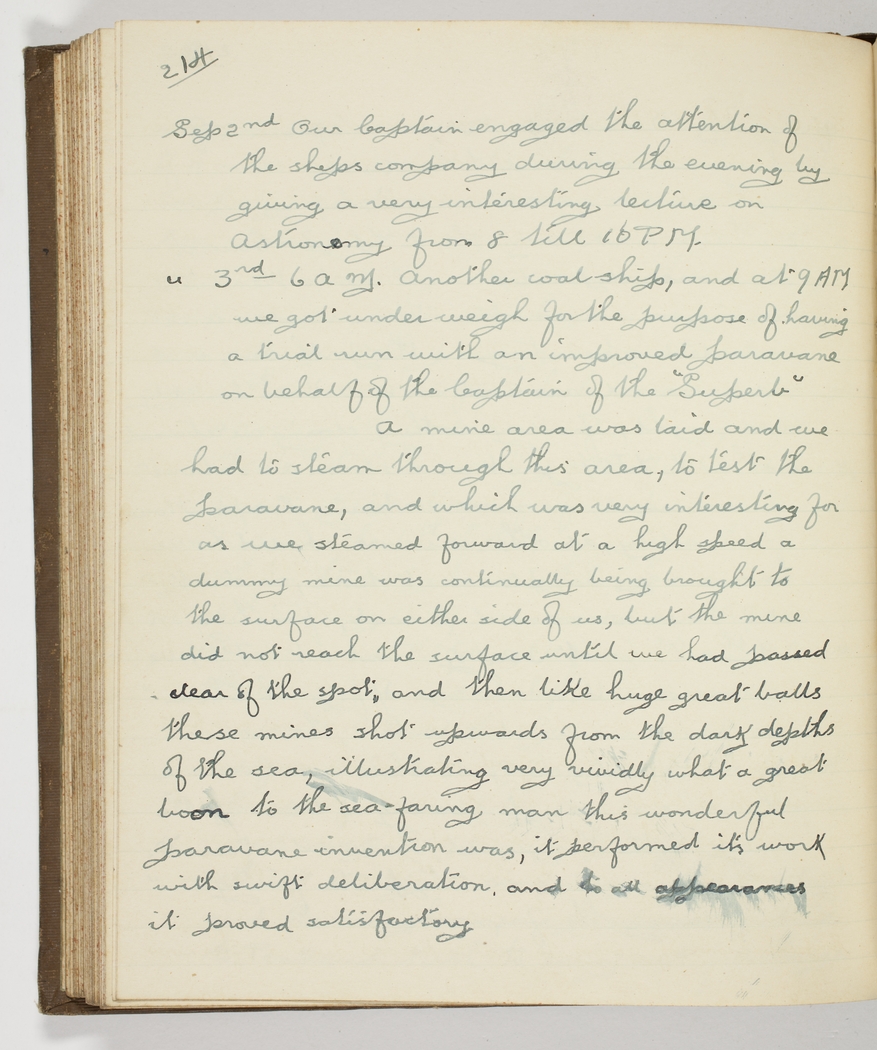 214
Sep 2nd Our Captain engaged the attention of
the ships company during the evening by
giving a very interesting lecture on
Astronomy from 8 till 10 P M.
" 3rd 6 a m. Another coal ship, and at 9 AM
we got under weigh for the purpose of having
a trial run with an improved paravane
on behalf of the Captain of the "Superb"
A mine area was laid and we
had to steam through this area, to test the
paravane, and which was very interesting for
as we steamed forward at a high speed a
dummy mine was continually being brought to
the surface on either side of us, but the mine
did not reach the surface until we had passed
clear of the spot, and then like huge great balls
these mines shot upwards from the dark depths
of the sea, illustrating very vividly what a great
boon to the sea-faring man this wonderful
paravane invention was, it performed it's work
with swift deliberation, and to all appearances
it proved satisfactory